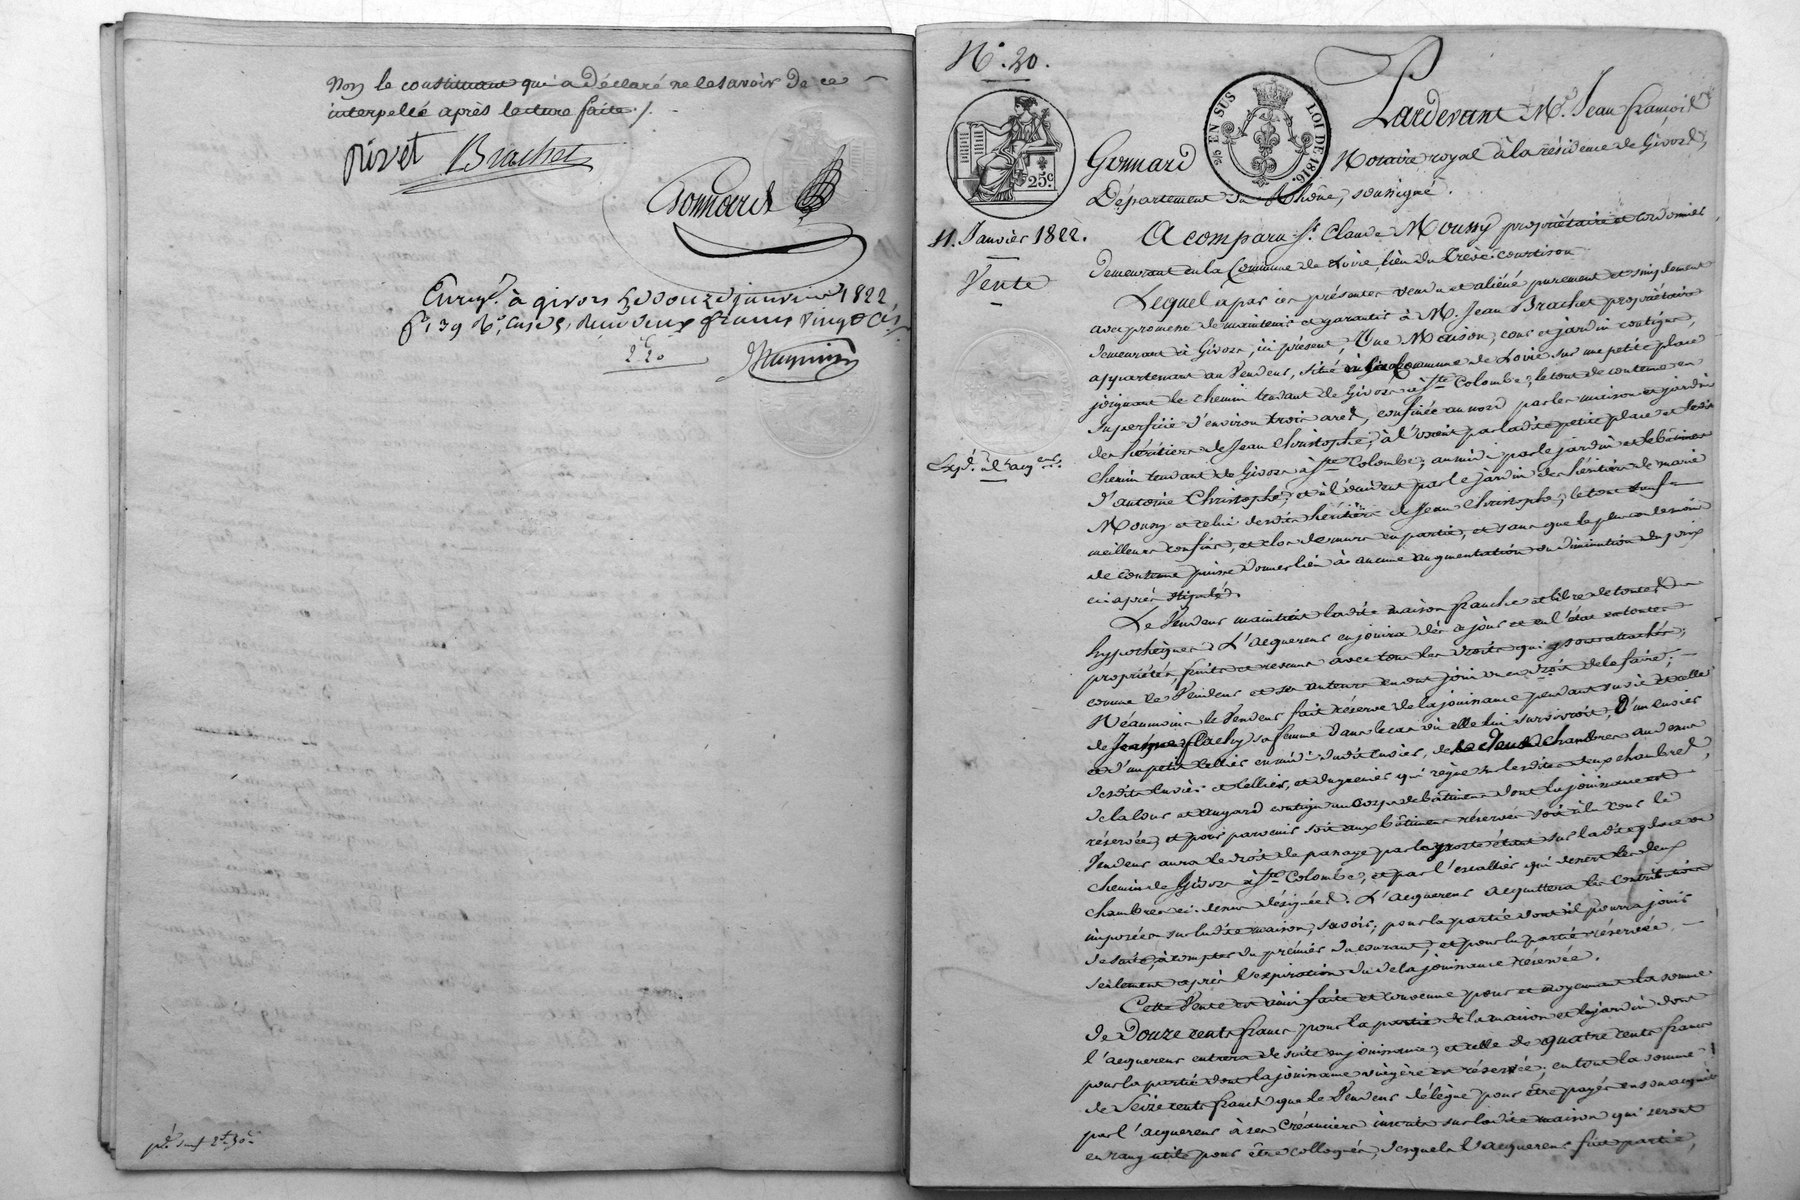 Non le constituant qui a déclaré ne le savoir de ce
interpellé après lecture faite ./.
Rivet Brachet
Gonnard
Enregé. à givors le douze janvier 1822,
fo. 139 Ro. Case 5, Reçu deux francs vingt Ces.
2f 20
No. 20.
25 EN SUS LOI DE 1816.
25c.
Pardevant Me. Jean françois
Gonnard Notaire royal à la résidence de Givors,
Département du Rhône, soussigné.
11. Janvier 1822.
Vente
A comparu sr. Claude Moussy propriétaire et cordonnier
demeurant en la Commune de Loire, lieu du Trève-courtison
Lequel a par ces présentes vendu et aliéné purement et simplement
avec promesse de maintenir et garantir à M. Jean Brachet propriétaire
demeurant à Givors, ici présent, Une Maison, cour et jardin contigus,
appartenant au Vendeur, situé en la Commune de Loire sur une petite place
joignant le chemin tendant de Givors à Ste Colombe, le tout de contenu en
superficie d'environ trois ares, confinée au nord par les maison et jardin
des héritiers de Jean Christophe, à l'occident par ladite petite place et ledit
chemin tendant de Givors à Ste Colombe, au midi par le jardin et le bâtiment
d'antoine Christophe, et à l'orient par le jardin des héritiers de marie
Moussy et celui desdits héritiers de Jean Christophe, le tout sauf
meilleurs confins, et clos de murs en partie, et sans que le plus ou le moins
de contenue puisse donner lieu à aucune augmentation ou diminution du prix
ci-après stipulé.
Expé. à l'acqéreur.
Le Vendeur maintient ladite maison franche et libre de toutes
hypothèques. L'acquéreur en jouira dès ce jour et en l'état en toutes
propriétés, fruits et revenus avec tous les droits qui y sont attachés,
comme le Vendeur et ses auteurs en ont joui ou eu droit de le faire;
Néanmoins le Vendeur fait réserve de la jouissance pendant sa vie et celle
de sa femme dans le cas où elle lui survivroit, D'un cuvier
et d'un petit cellier en midi dudit cuvier, des deux chambres au dessus
desdits cuvier et cellier, et du grenier qui règne sur lesdites deux chambres,
de la cour et angard contigu au corps de bâtiment dont la jouissance est
réservée, et pour parvenir soit aux bâtiments réservés soit à la cour le
Vendeur aura le droit de passage par la porte étant sur ladite place ou
chemin de Givors à Ste Colombe, et par l'escallier qui dessert les deux
chambres ci-dessus désignées. L'acquéreur acquittera les contributions
imposées sur ladite maison, savoir, pour la partie dont il pourra jouir
de suite, à compter du premier du courant, et pour la partie réservée
seulement après l'expiration de la jouissance réservée.
Cette Vente est ainsi faite et convenue pour et moyennant la somme
de Douze cents francs pour la partie de la maison et du jardin dont
l'acquéreur entrera de suite en jouissance, et celle de quatre cents francs
pour la partie dont la jouissance viagère est réservée; en tout la somme
de Seize cents francs que le Vendeur délègue pour être payés en son acquit
par l'acquéreur à ses Créanciers inscrits sur ladite maison qui seront
en rang utile pour être colloqués, desquels l'acquéreur fera partie,